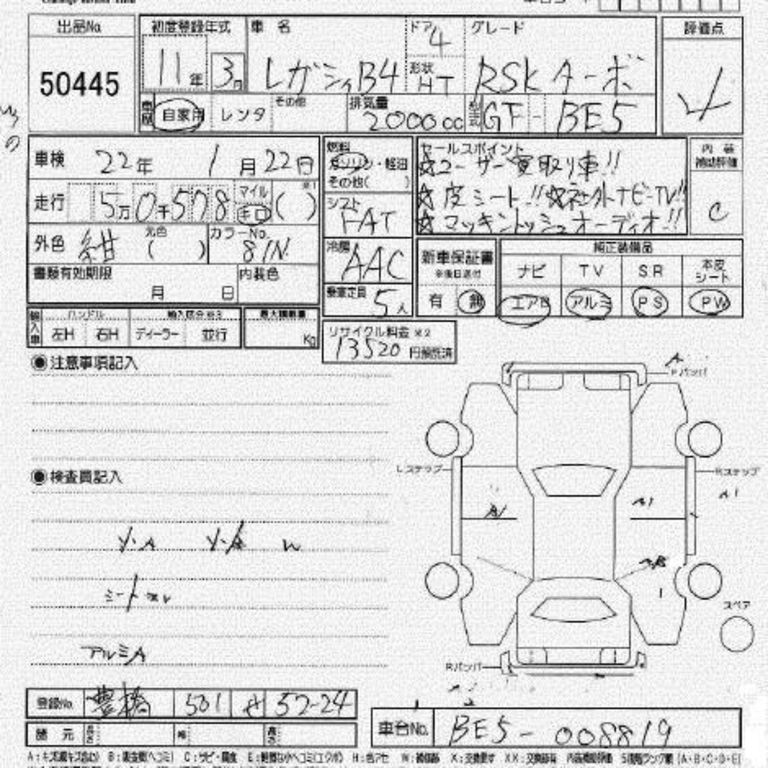 出品No. 初度登録年式 車名 ドア グレード 評価点
50445 11年 3月 レガシィB4 4 形状 HT RSK ターボ 4
自家用 レンタ その他 排気量 2000cc 型式 GF-BE5
車検 22年 1月22日 燃料 ガソリン・軽油 その他( ) セールスポイント 内装補助評価
☆ユーザー買取り車!!
走行 5万0千578 マイル キロ ( ) シフト FAT ☆皮シート!! ☆社外ナビTV!! C
☆マッキントッシュオーディオ!!
外色 紺 元色 ( ) カラーNo. 81N 冷房 AAC 新車保証書 ※後日送付 純正装備品
ナビ TV SR 本皮シート
書類有効期限 月 日 内装色 乗車定員 5人 有 無 エアB アルミ PS PW
輸入車 ハンドル 左H 右H ディーラー 並行 最大積載量 Kg リサイクル料金 ※2 13520 円預託済
◉注意事項記入
Fバンパ A
◉検査員記入
Lステップ Rステップ
A1 A1 A1
ソ・A W
シート
スペア
アルミA
Rバンパ
登録No. 豊橋 501 せ 57-24
諸元 長さ 幅 高さ 車台No. BE5-008819